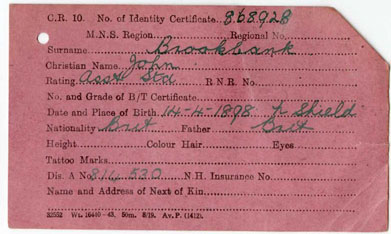 C.R. 10. No. of Identity Certificate. 868928
M.N.S. Region Regional No.
Surname Brookbank
Christian Name John
Rating Asst Std R.N.R. No.
No. and Grade of B/T Certificate
Date and Place of Birth 14-4-1898 Shield
Nationality Brit Father Brit
Height Colour Hair Eyes
Tattoo Marks
Dis. A No. 814530 N.H. Insurance No.
Name and Address of Next of Kin
32552 Wt. 16440-43. 50m. 8/19. Av. P. (1412).